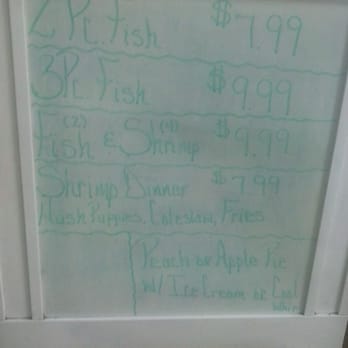 2 Pc. Fish $7.99
3 Pc Fish $9.99
Fish (2) & Shrimp (4) $9.99
Shrimp Dinner $7.99
Hush Puppies, Coleslaw, Fries
Peach or Apple Pie
W/ Ice Cream or Cool
Whip